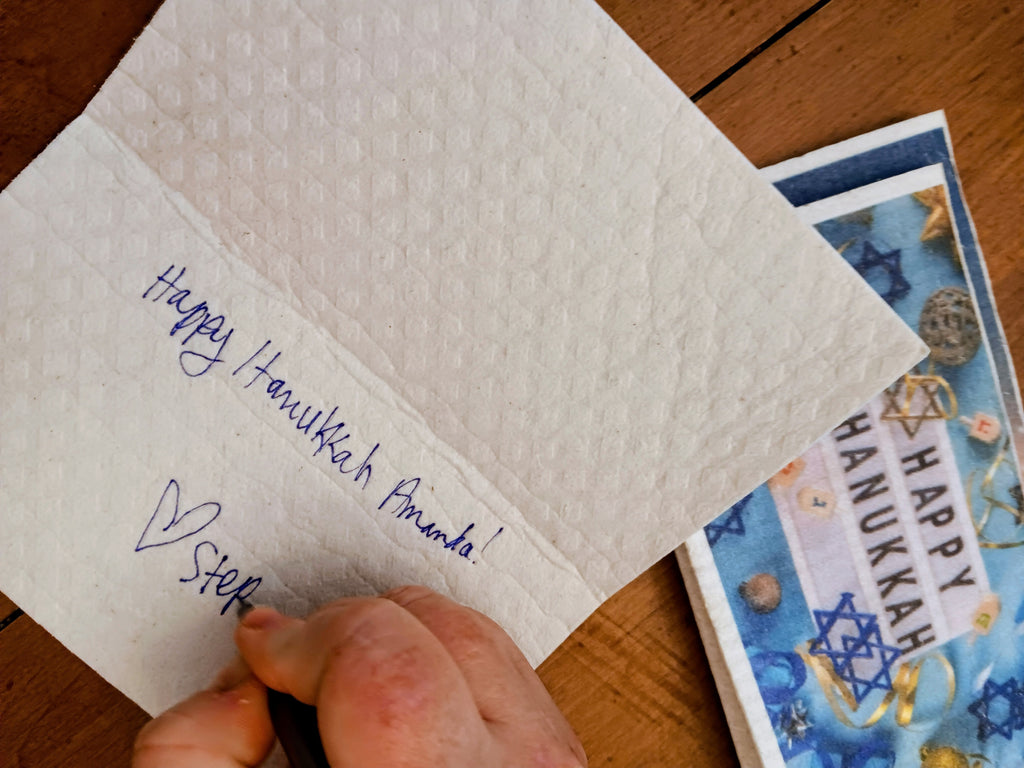 Happy Hanukkah Amanda!
♡ Step
HAPPY
HANUKKAH